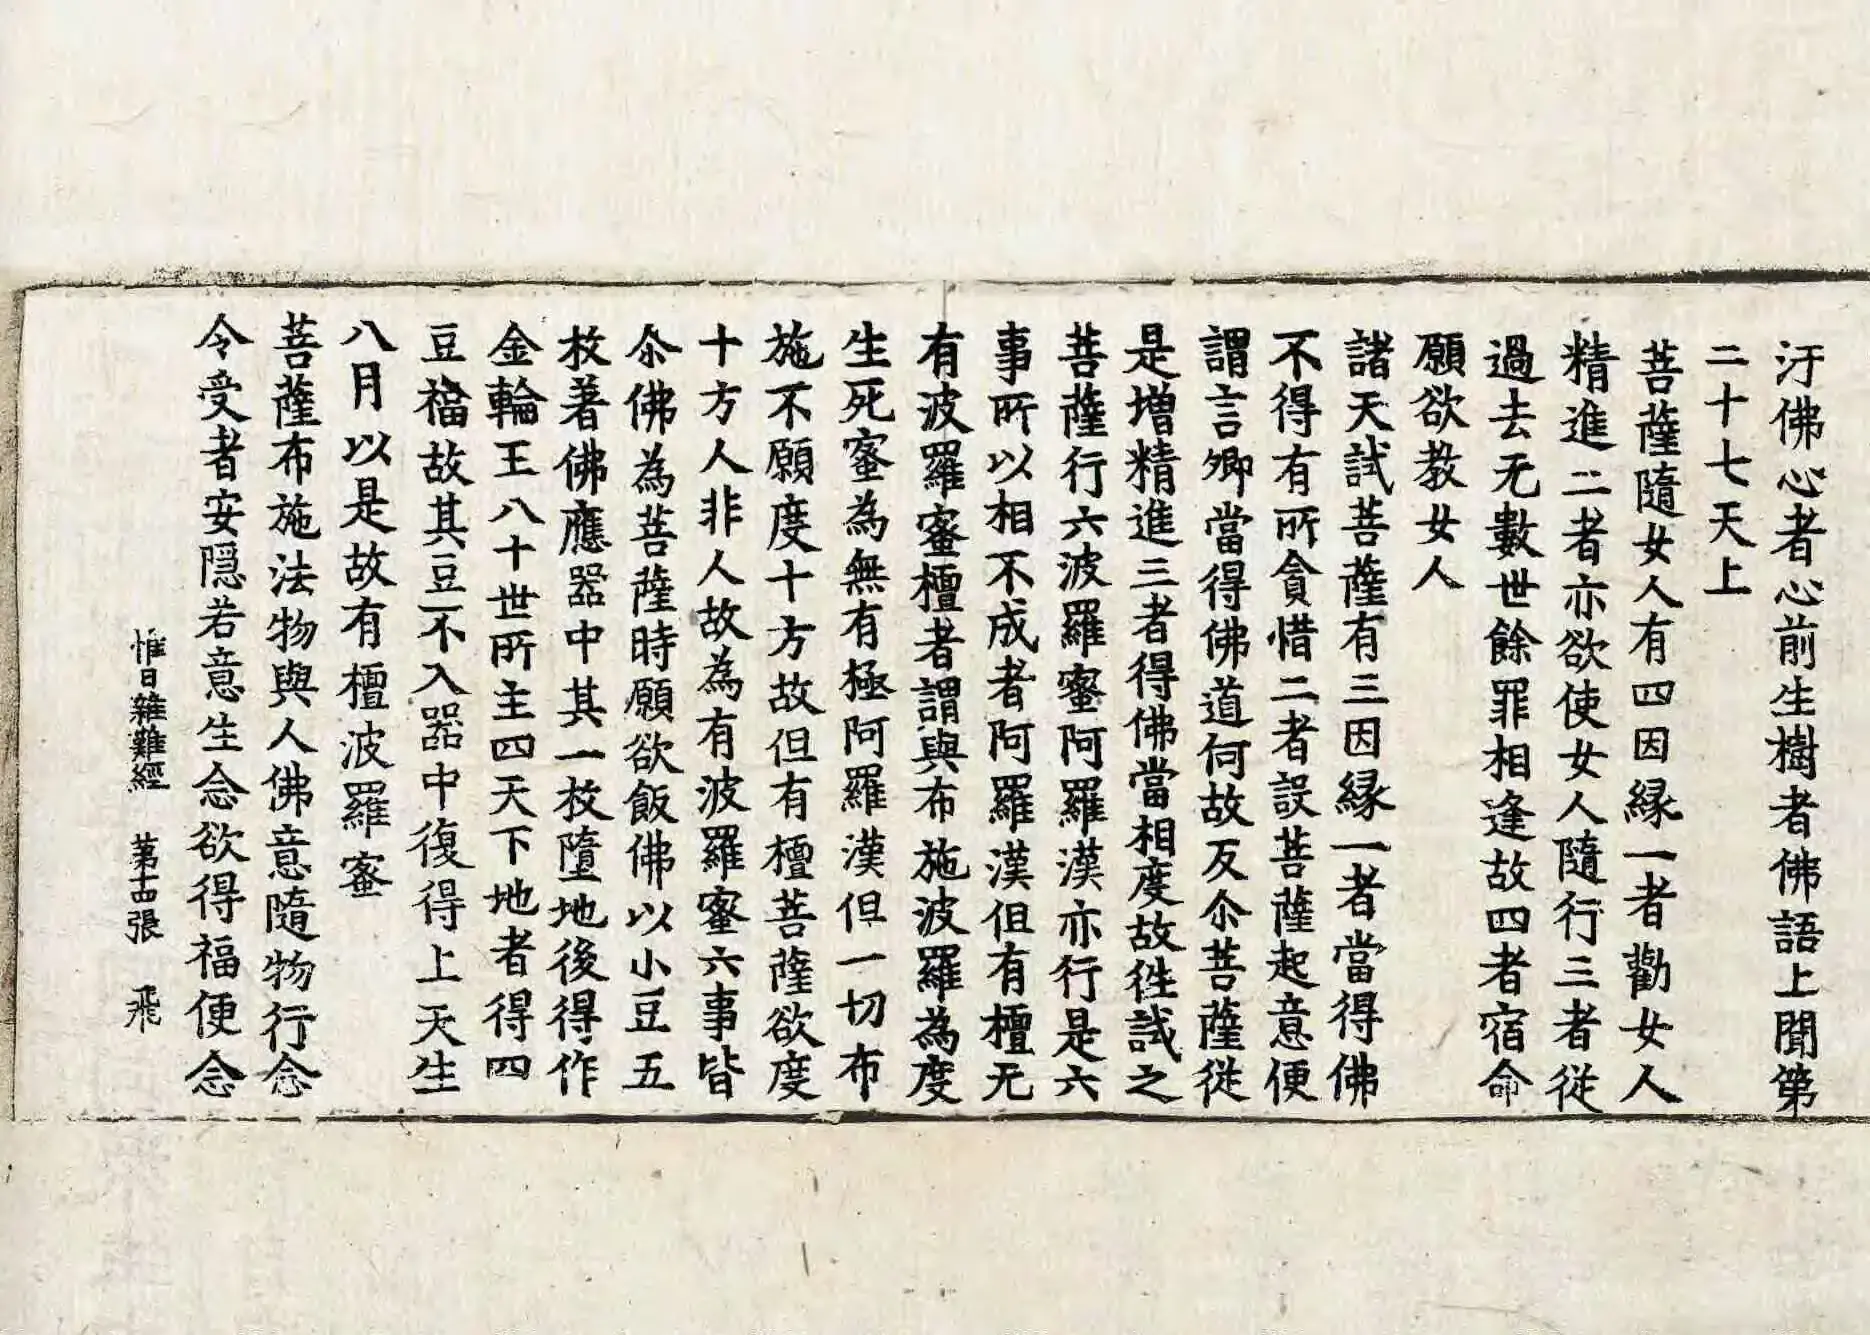 汙佛心者心前生樹者佛語上聞第
二十七天上
菩薩隨女人有四因緣一者勸女人
精進二者亦欲使女人隨行三者從
過去无數世餘罪相逢故四者宿命
願欲教女人
諸天試菩薩有三因緣一者當得佛
不得有所貪惜二者誤菩薩起意便
謂言卿當得佛道何故反尒菩薩從
是增精進三者得佛當相度故往試之
菩薩行六波羅蜜阿羅漢亦行是六
事所以相不成者阿羅漢但有檀无
有波羅蜜檀者謂與布施波羅為度
生死蜜為無有極阿羅漢但一切布
施不願度十方故但有檀菩薩欲度
十方人非人故為有波羅蜜六事皆
尒佛為菩薩時願欲飯佛以小豆五
枚著佛應器中其一枚墮地後得作
金輪王八十世所主四天下地者得四
豆福故其豆不入器中復得上天生
八月以是故有檀波羅蜜
菩薩布施法物與人佛意隨物行念
令受者安隱若意生念欲得福便念
惟曰雜難經 第十四張 飛